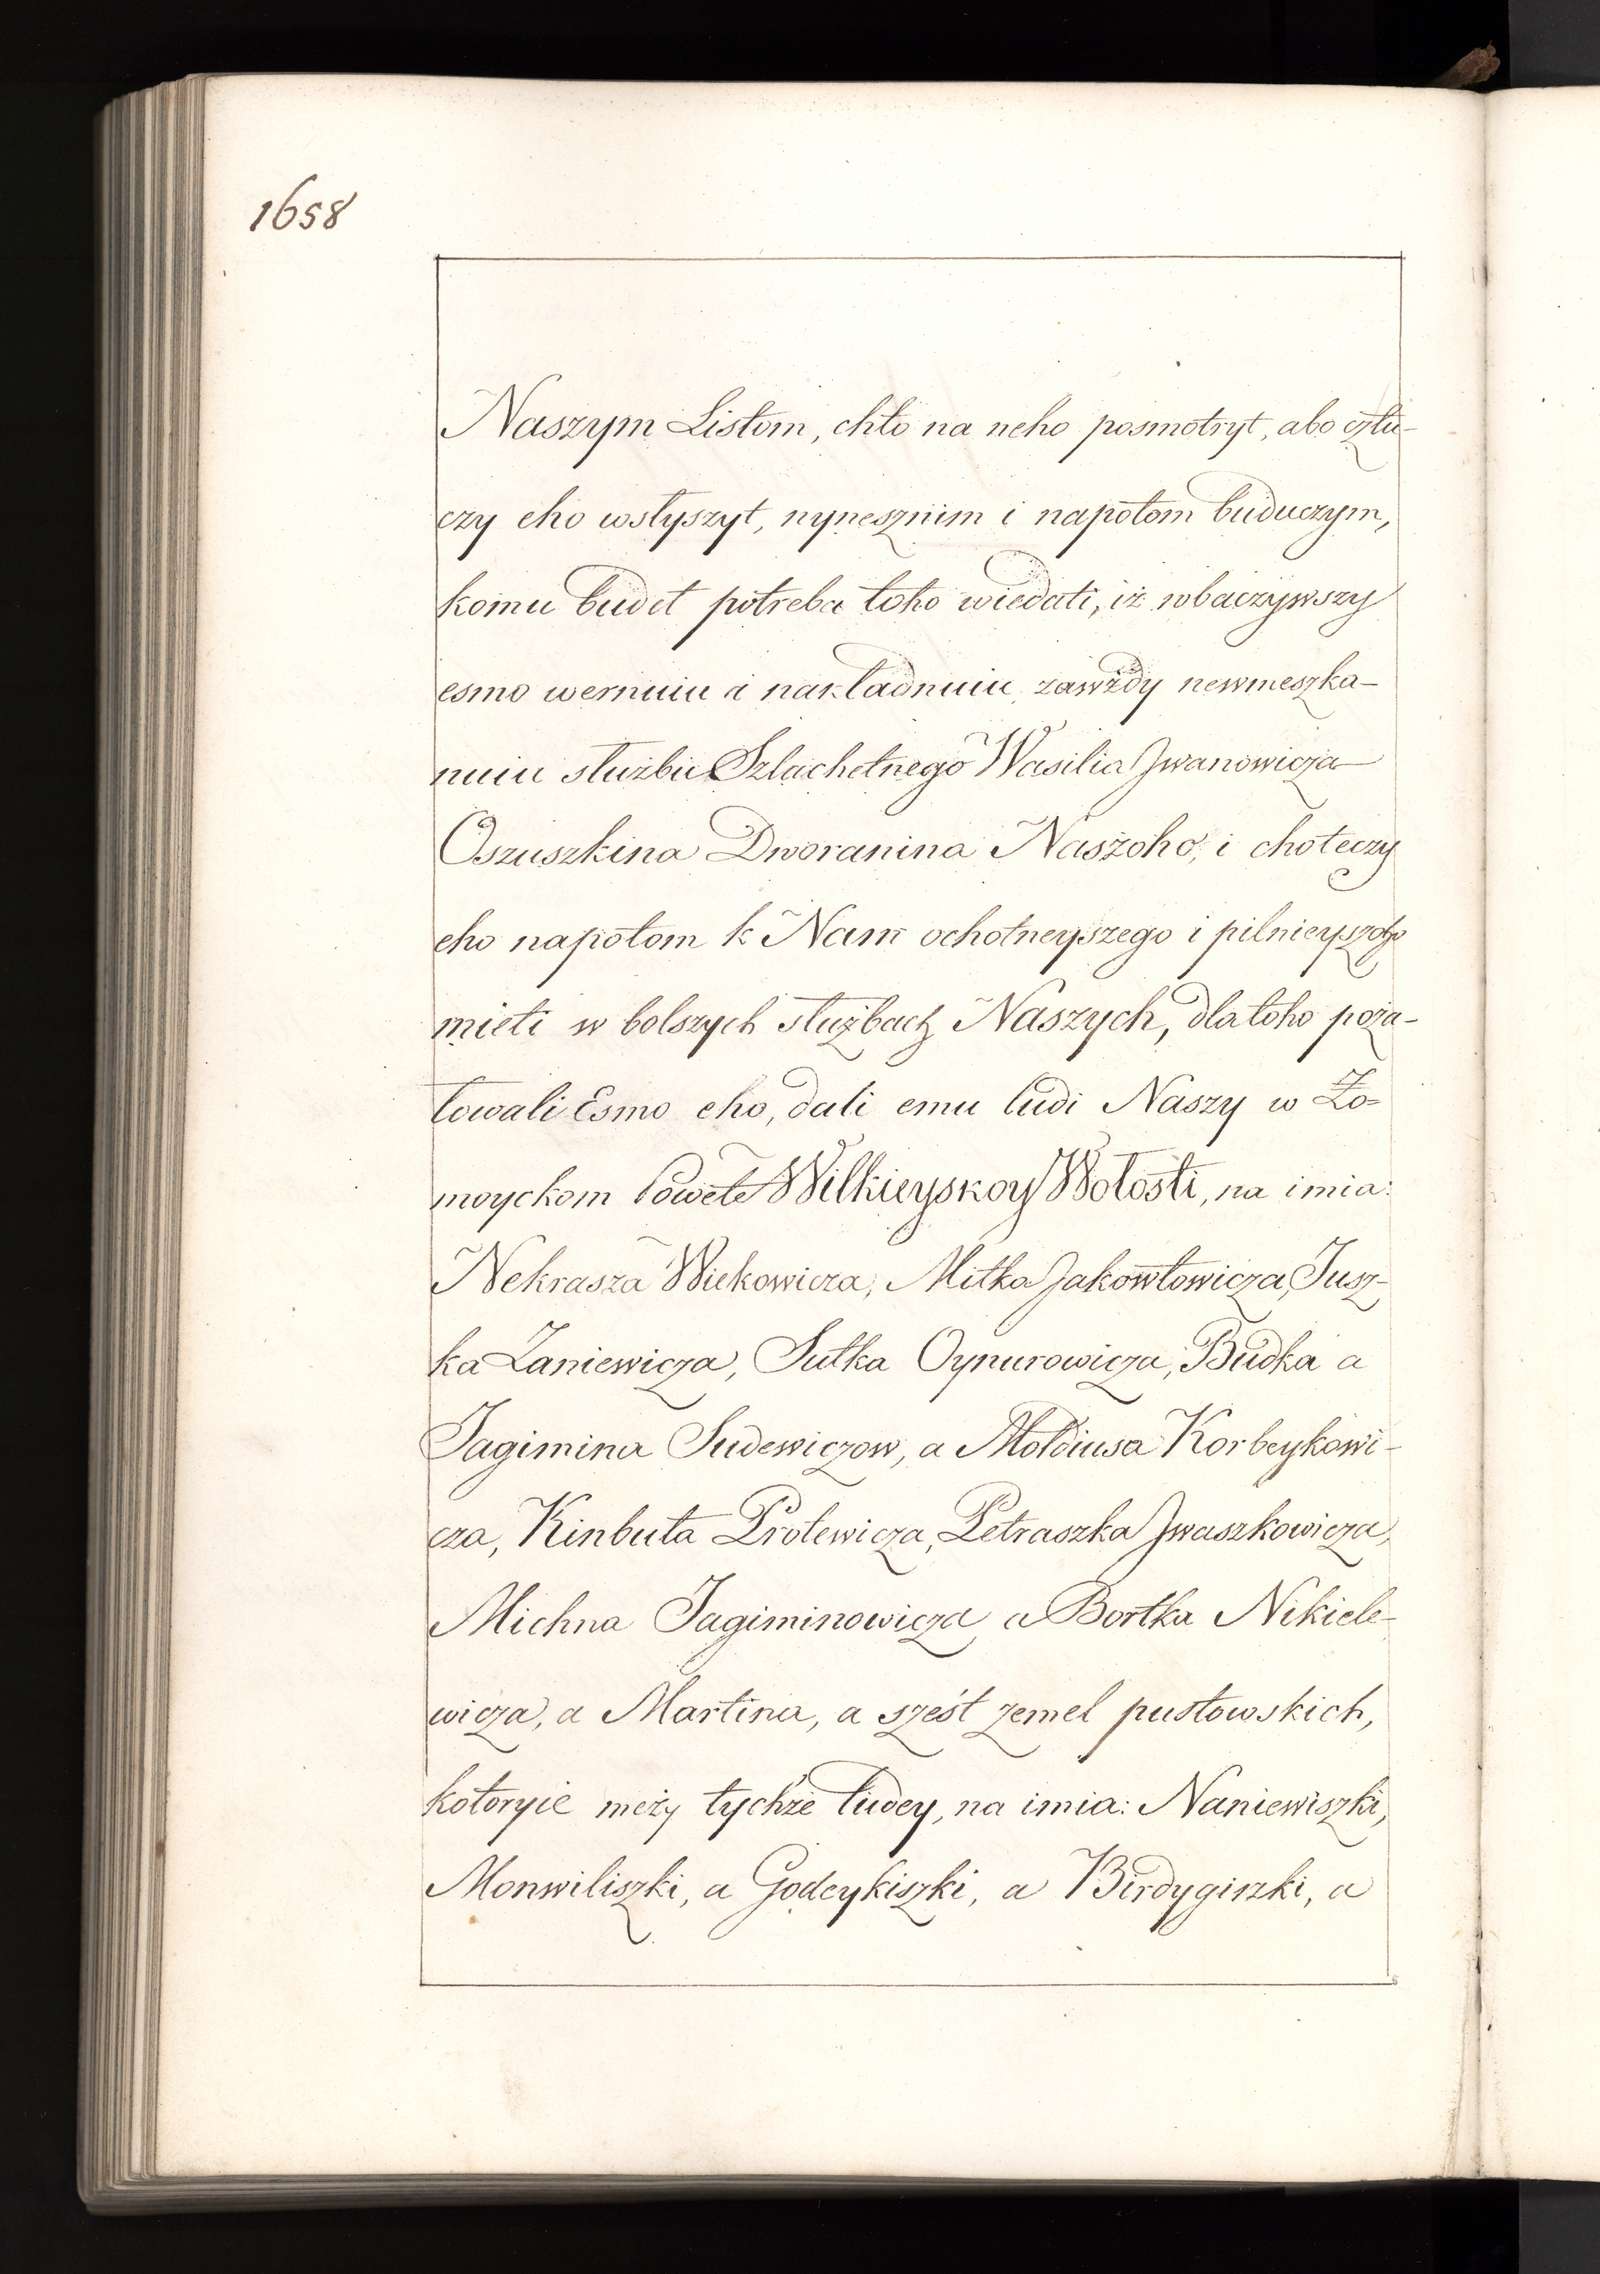 1658
Naszym Listom, chto na neho posmotryt, abo cztu-
czy eho wsłyszyt, nynesznim i napotom buduczym,
komu budet potreba toho wiedati, iż wbaczywszy
esmo wernuiu i nakładnuiu zawżdy newmeszka-
nuiu służbu Szlachetnego Wasilia Jwanowicza
Oszuszkina Dworanina Naszoho, i choteczy
eho napotom k Nam ochotneyszego i pilnieyszoho
mieti w bolszych służbach Naszych, dla toho poża-
łowali Esmo eho, dali emu ludi Naszy w Żo=
moyckom Powete Wilkieyskoy Wołosti, na imia:
Nekrasza Wiekowicza, Mitka Jakowłowicza, Jusz-
ka Zaniewicza, Sutka Oynurowicza, Budka a
Jagimina Sudewiczow, a Mołdiusa Korbeykowi-
cza, Kinbuta Protewicza, Petraszka Jwaszkowicza,
Michna Jagiminowicza a Bortka Nikiele-
wicza, a Martina, a sześt zemel pustowskich,
kotoryie meży tychże ludey, na imia: Naniewiszki,
Monwiliszki, a Godeykiszki, a Birdygiszki, a